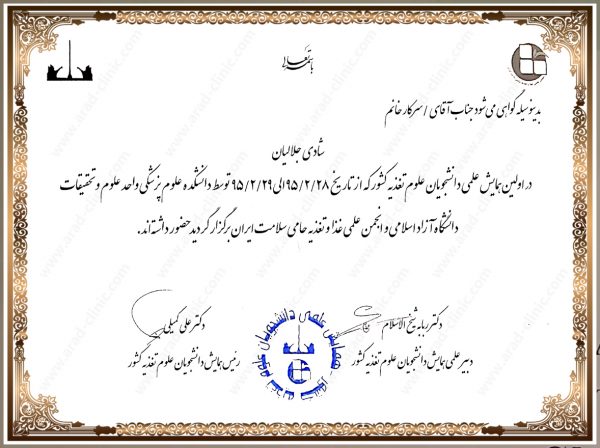 باسمه تعالی
بدینوسیله گواهی می شود جناب آقای / سرکار خانم
شادی جلالیان
در اولین همایش علمی دانشجویان علوم تغذیه کشور که از تاریخ ۹۵/۲/۲۸ الی ۹۵/۲/۲۹ توسط دانشکده علوم پزشکی واحد علوم و تحقیقات
دانشگاه آزاد اسلامی و انجمن علمی غذا و تغذیه حامی سلامت ایران برگزار گردید حضور داشته‌اند.
دکتر ربابه شیخ الاسلام
دبیر علمی همایش دانشجویان علوم تغذیه کشور
دکتر علی کمیلی
رئیس همایش دانشجویان علوم تغذیه کشور
همایش علمی دانشجویان علوم تغذیه کشور
www.arad-clinic.com